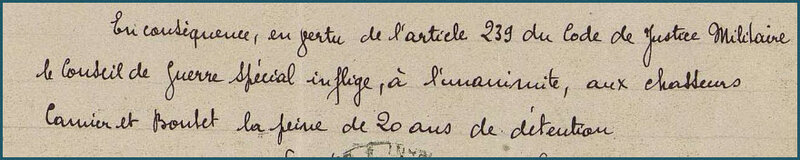 En conséquence, en vertu de l'article 239 du Code de Justice Militaire
le Conseil de Guerre Spécial inflige, à l'unanimité, aux chasseurs
Camier et Boutet la peine de 20 ans de détention